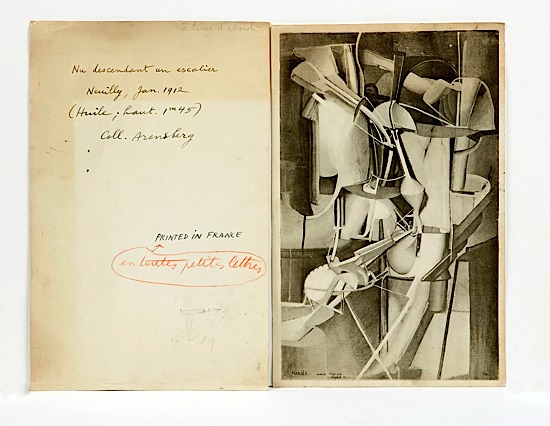 à tirer d'abord
Nu descendant un escalier
Neuilly, Jan. 1912
(Huile; haut. 1m45)
Coll. Arensberg
PRINTED IN FRANCE
en toutes petites lettres